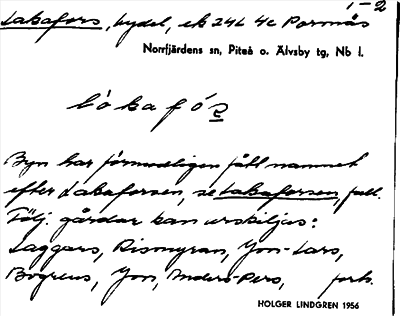 1-2
Lakafors, bydel, ek 24L 4c Pormås
Norrfjärdens sn, Piteå o. Älvsby tg, Nb l.
lo´kafo´R
Byn har förmodligen fått namnet
efter Lakaforsen, se Lakaforsen, fall.
Följ. gårdar kan urskiljas:
Laggars, Rismyran, Jon-Lars,
Bogreus, Jon, Anders-Pers, forts.
HOLGER LINDGREN 1956